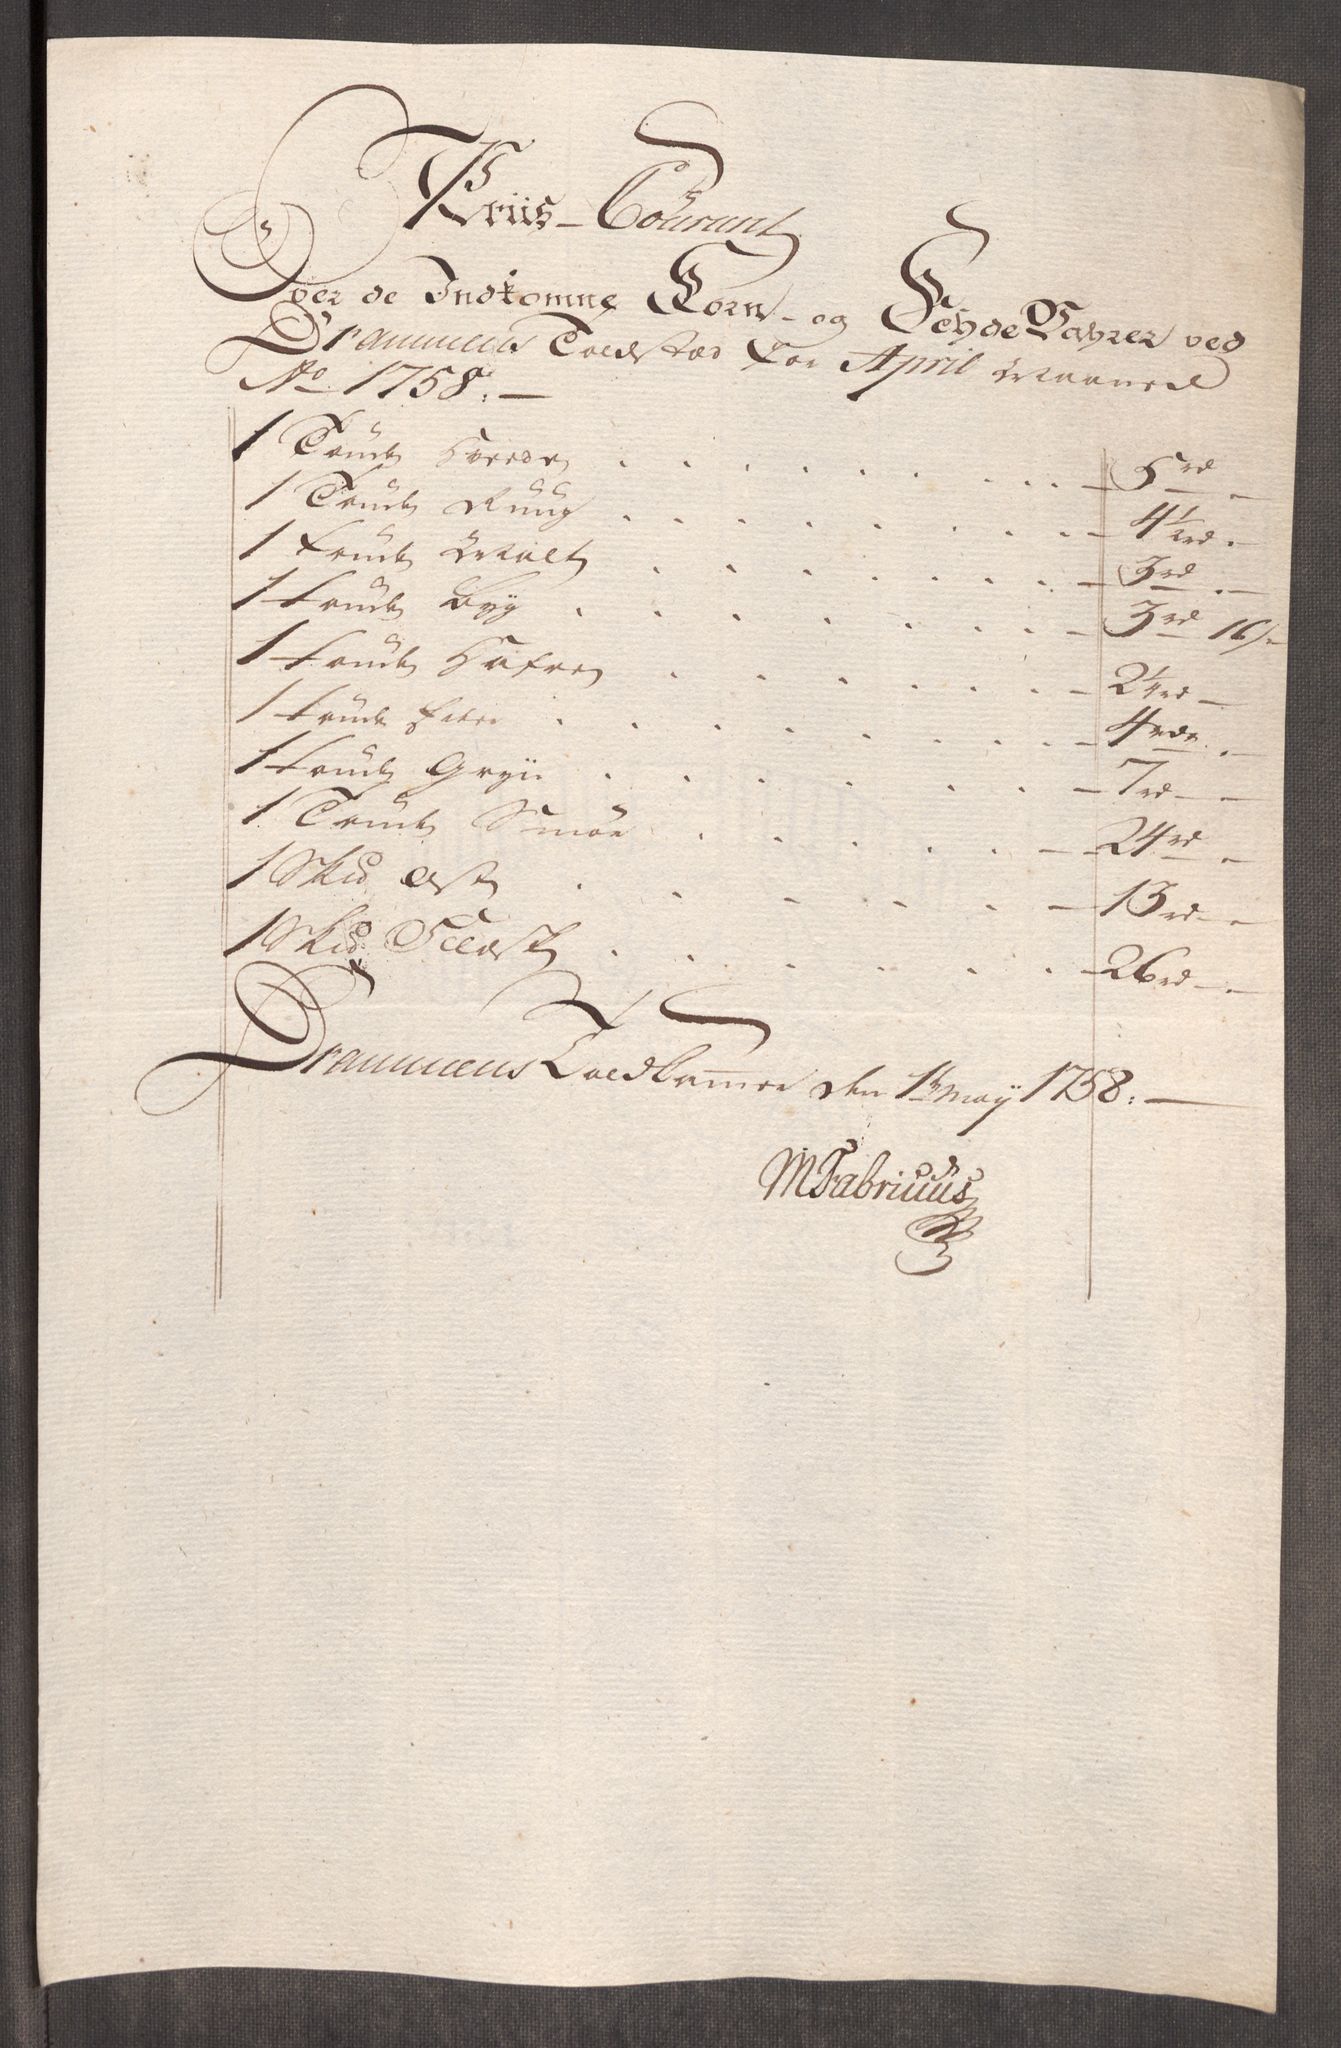 Priis-Courant
Over de Indkomne Korn- og Fehde Vahrer ved
Drammens Toldsted for April Maaned
Ao 1758. —
1 Tønde Hvede . . . . . . . . — 5 rd —
1 Tønde Rüüg . . . . . . . — 4 1/2 rd. —
1 Tønde Malt . . . . . . . — 3 rd . —
1 Tønde Byg . . . . . . . — 3 rd 16 s
1 Tønde Hafre . . . . . . . — 2 1/4 rd —
1 Tønde . . . . . . . — 4 rdr. —
1 Tønde Gryn . . . . . . — 7 rd — —
1 Tønde Smør . . . . . . — 24 rd —
1 Skd Ost . . . . . . — 13 rd — —
1 Skd Flesk . . . . . . — 26 rd — . —
Drammens Toldkammer den 1te May 1758. —
MFabricius